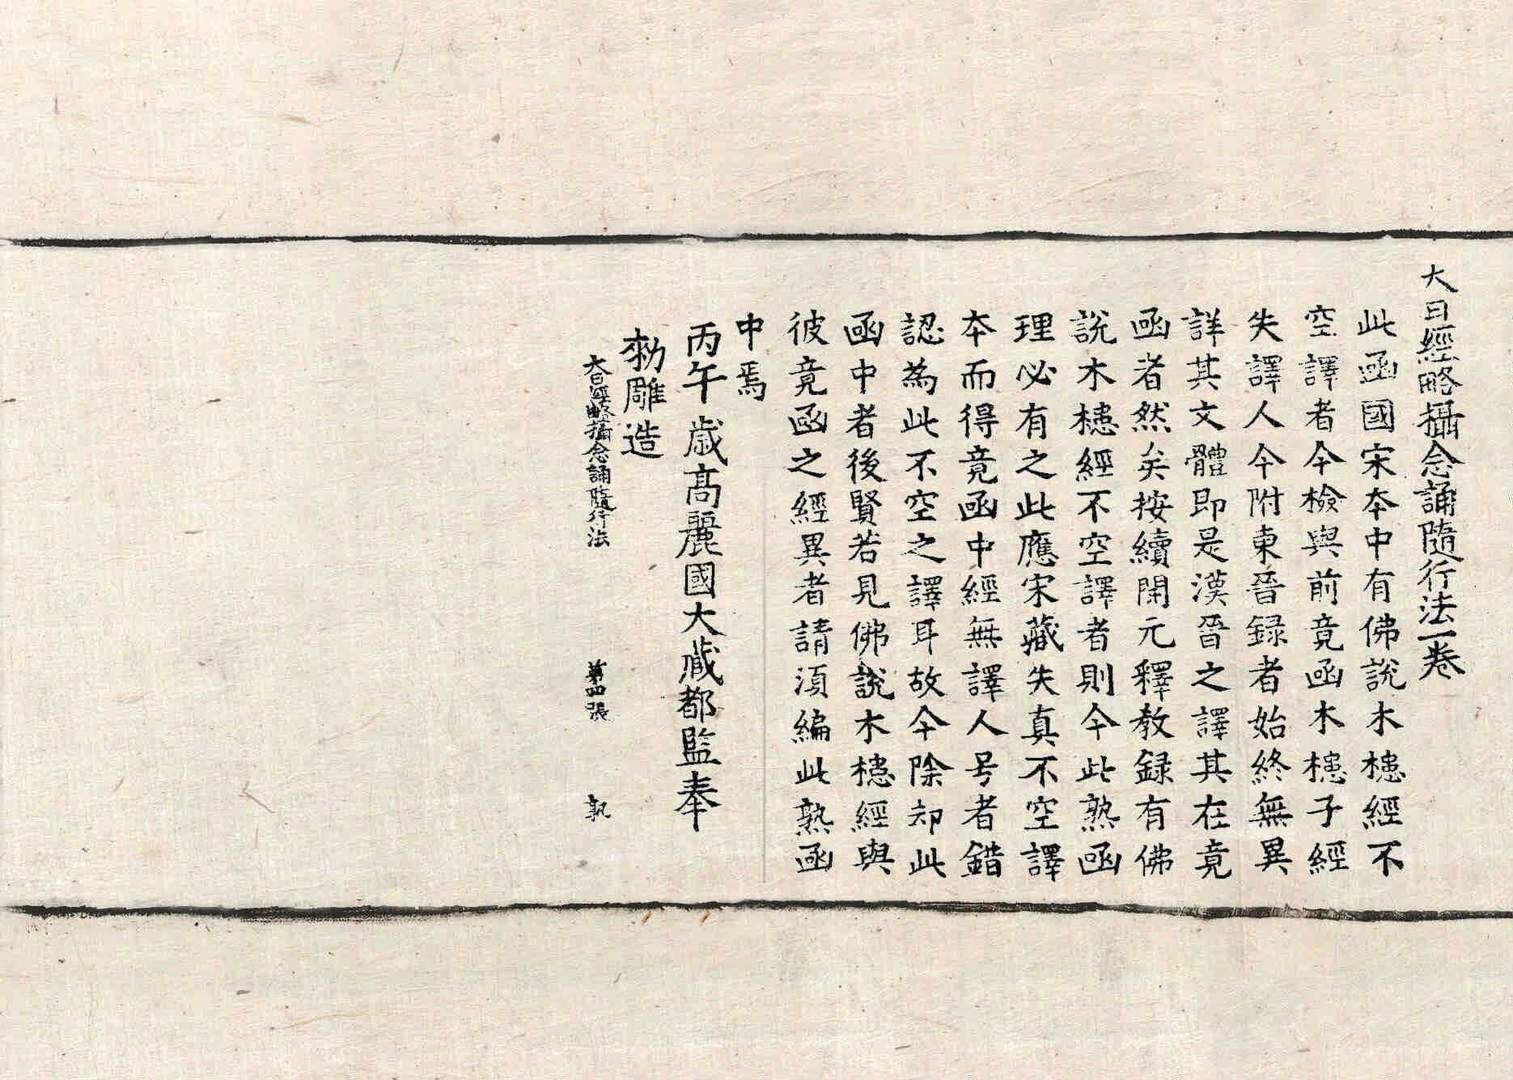 大日經略攝念誦隨行法一卷
此函國宋本中有佛說木槵經不
空譯者今檢與前竟函木槵子經
失譯人今附東晉録者始終無異
詳其文體即是漢晉之譯其在竟
函者然矣按續開元釋教録有佛
說木槵經不空譯者則今此熟函
理必有之此應宋藏失真不空譯
本而得竟函中經無譯人号者錯
認為此不空之譯耳故今除却此
函中者後賢若見佛說木槵經與
彼竟函之經異者請須編此熟函
中焉
丙午歲高麗國大藏都監奉
勑雕造
大日經略攝念誦隨行法 第四張 孰